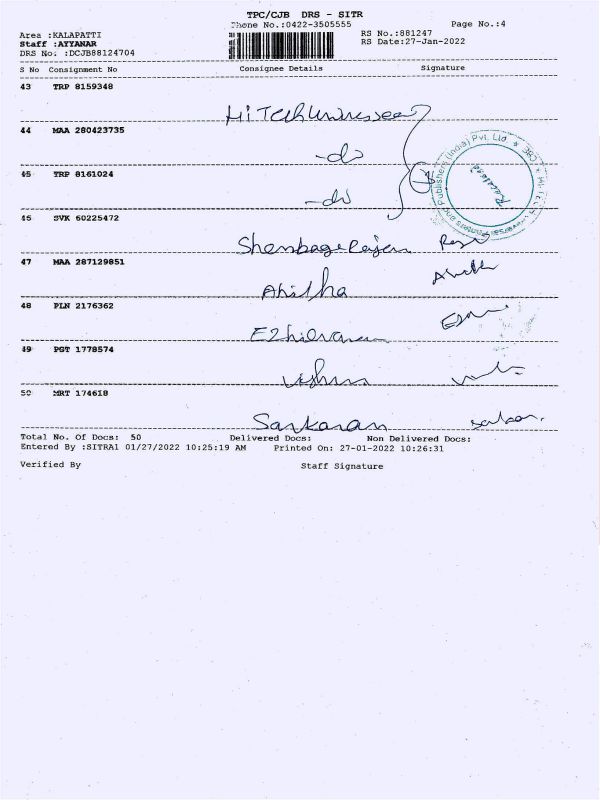 TPC/CJB DRS - SITR
Phone No.:0422-3505555
Page No.:4
Area :KALAPATTI
RS No.:881247
Staff :AYYANAR
RS Date:27-Jan-2022
DRS No. :DCJB88124704
S No Consignment No Consignee Details Signature
43 TRP 8159348
Hi Tech
44 MAA 280423735
-do
45 TRP 8161024
-do
46 SVK 60225472
Shenbaga Rajan
47 MAA 287129851
Ahitha
48 PLN 2176362
Ezhilvanan
49 PGT 1778574
50 MRT 174618
Sankaran
Received
Publishers (India) Pvt. Ltd. ★
Total No. Of Docs: 50 Delivered Docs: Non Delivered Docs:
Entered By :SITRA1 01/27/2022 10:25:19 AM Printed On: 27-01-2022 10:26:31
Verified By Staff Signature